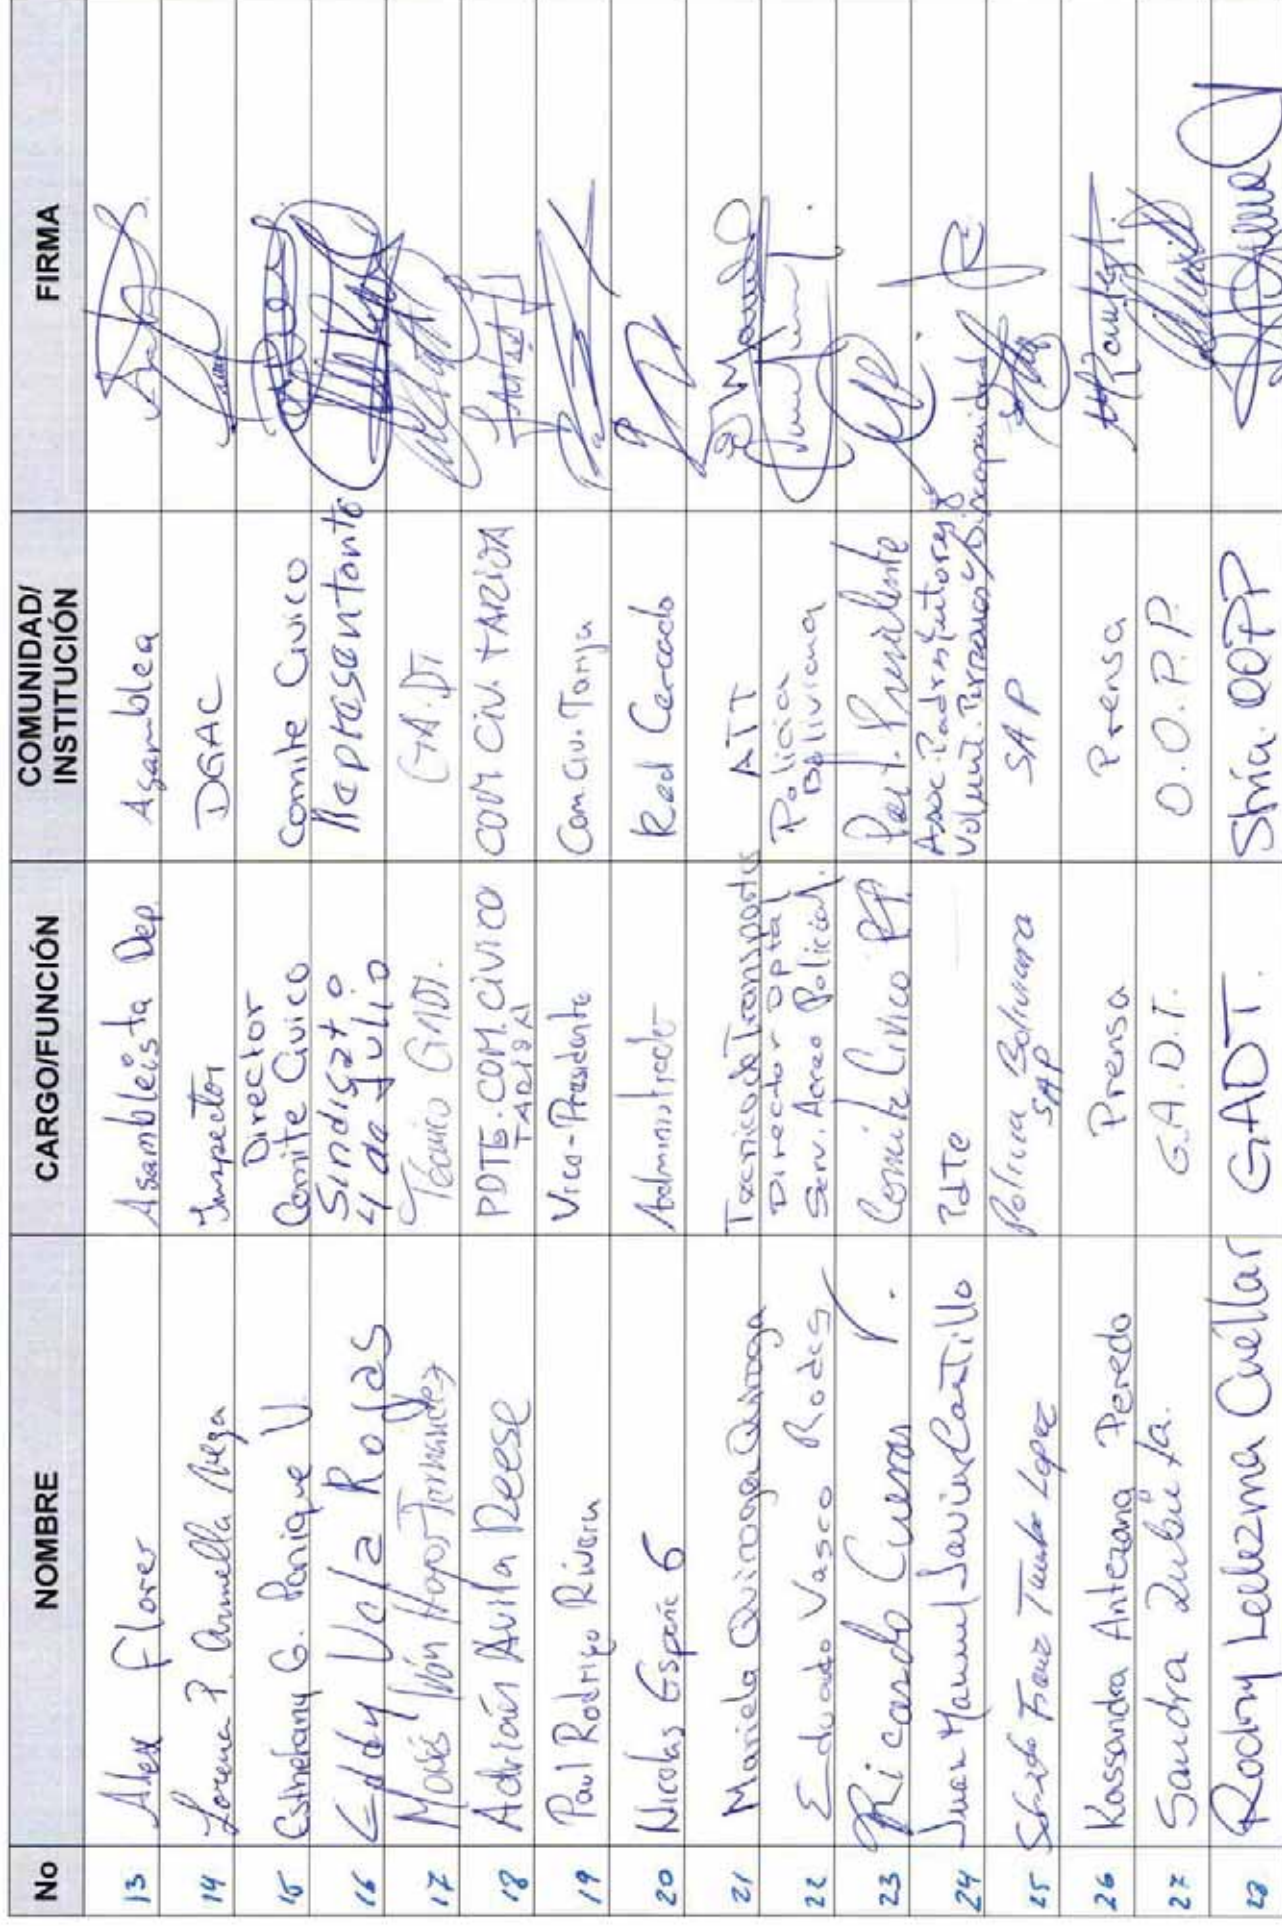 No NOMBRE CARGO/FUNCIÓN COMUNIDAD/ INSTITUCIÓN FIRMA
13 Alex Flores Asambleista Dep. Asamblea
14 Lorena P. Armella Vega Inspector DGAC
15 Esthefany G. Panique U. Director Comite Civico Comite Civico
16 Eddy Vela Rojas Sindigato 4 de Julio Representante
17 Ivón Hoyos Fernandez Técnico GADT. GA.DT
18 Adrián Avila Reese PDTE. COM. CIVICO TARIJA COM CIV. TARIJA
19 Paul Rodrigo Rivera Vice-Presidente Com. Civ. Tarija
20 Nicolas España G Administrador Red Cercado
21 Mariela Quiroga Quiroga Tecnico de Transportes ATT
22 Eduardo Vasco Rodes Director Dptal Serv. Aereo Policial. Policia Boliviana
23 Ricardo Cuevas V. Comite Civico PP Presidente
24 Juan Manuel Javier Castillo PdTe Asoc. Padres tutores y Volunt. Personas c/Discapacidad
25 Franz Lopez Policia Boliviana SAP SAP
26 Kassandra Antezana Peredo Prensa Prensa
27 Sandra Zubieta. G.A.D.T. O.O.P.P.
28 Rodny Ledezma Cuéllar GADT. Stría. OOPP